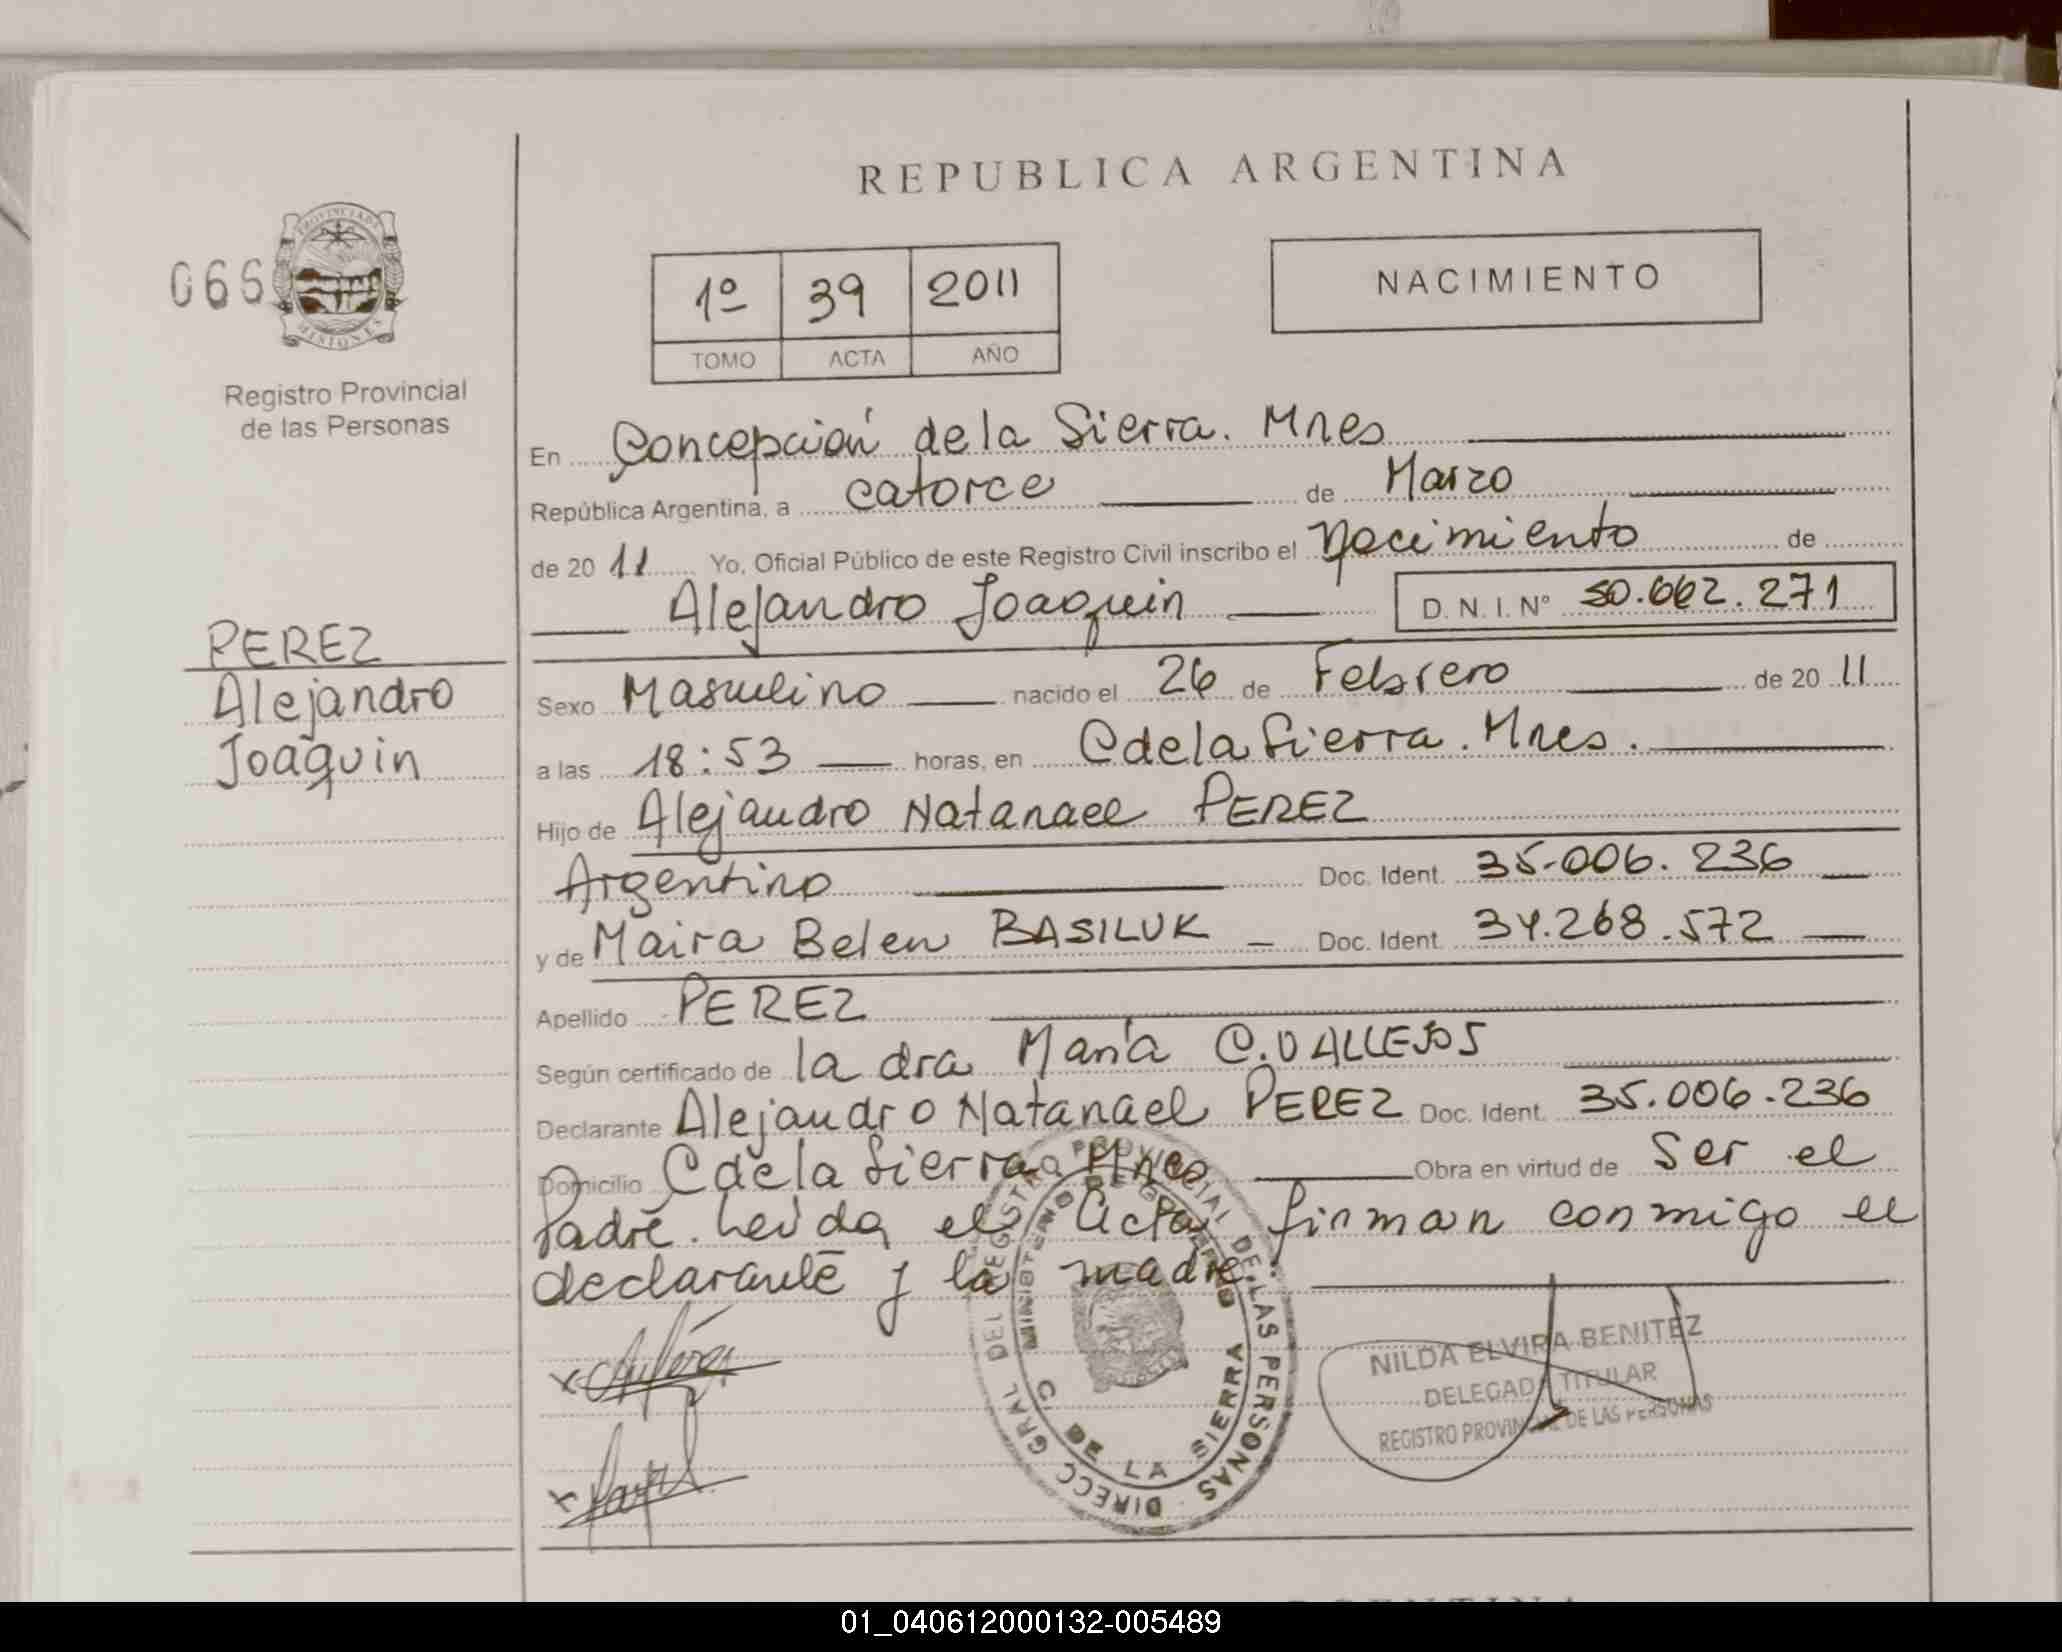 REPUBLICA ARGENTINA
066
PROVINCIA DE MISIONES
Registro Provincial
de las Personas
1º 39 2011
TOMO ACTA AÑO
NACIMIENTO
En Concepción de la Sierra. Mnes
República Argentina, a catorce de Marzo
de 2011 Yo, Oficial Público de este Registro Civil inscribo el Nacimiento de
Alejandro Joaquin D.N.I. Nº 50.662.271
PEREZ
Alejandro
Joaquin
Sexo Masculino nacido el 26 de Febrero de 2011
a las 18:53 horas, en C de la Sierra. Mnes.
Hijo de Alejandro Natanael PEREZ
Argentino Doc. Ident. 35.006.236
y de Maira Belen BASILUK Doc. Ident. 34.268.572
Apellido PEREZ
Según certificado de la dra María C. VALLEJOS
Declarante Alejandro Natanael PEREZ Doc. Ident. 35.006.236
Domicilio C de la Sierra Mnes Obra en virtud de Ser el
Padre. Leida el Acta, firman conmigo el
declarante y la madre.
DIRECC GRAL DEL REGISTRO PROVINCIAL DE LAS PERSONAS
MINISTERIO DE GOBIERNO
C. DE LA SIERRA
NILDA ELVIRA BENITEZ
DELEGADA TITULAR
REGISTRO PROVINCIAL DE LAS PERSONAS
01_040612000132-005489